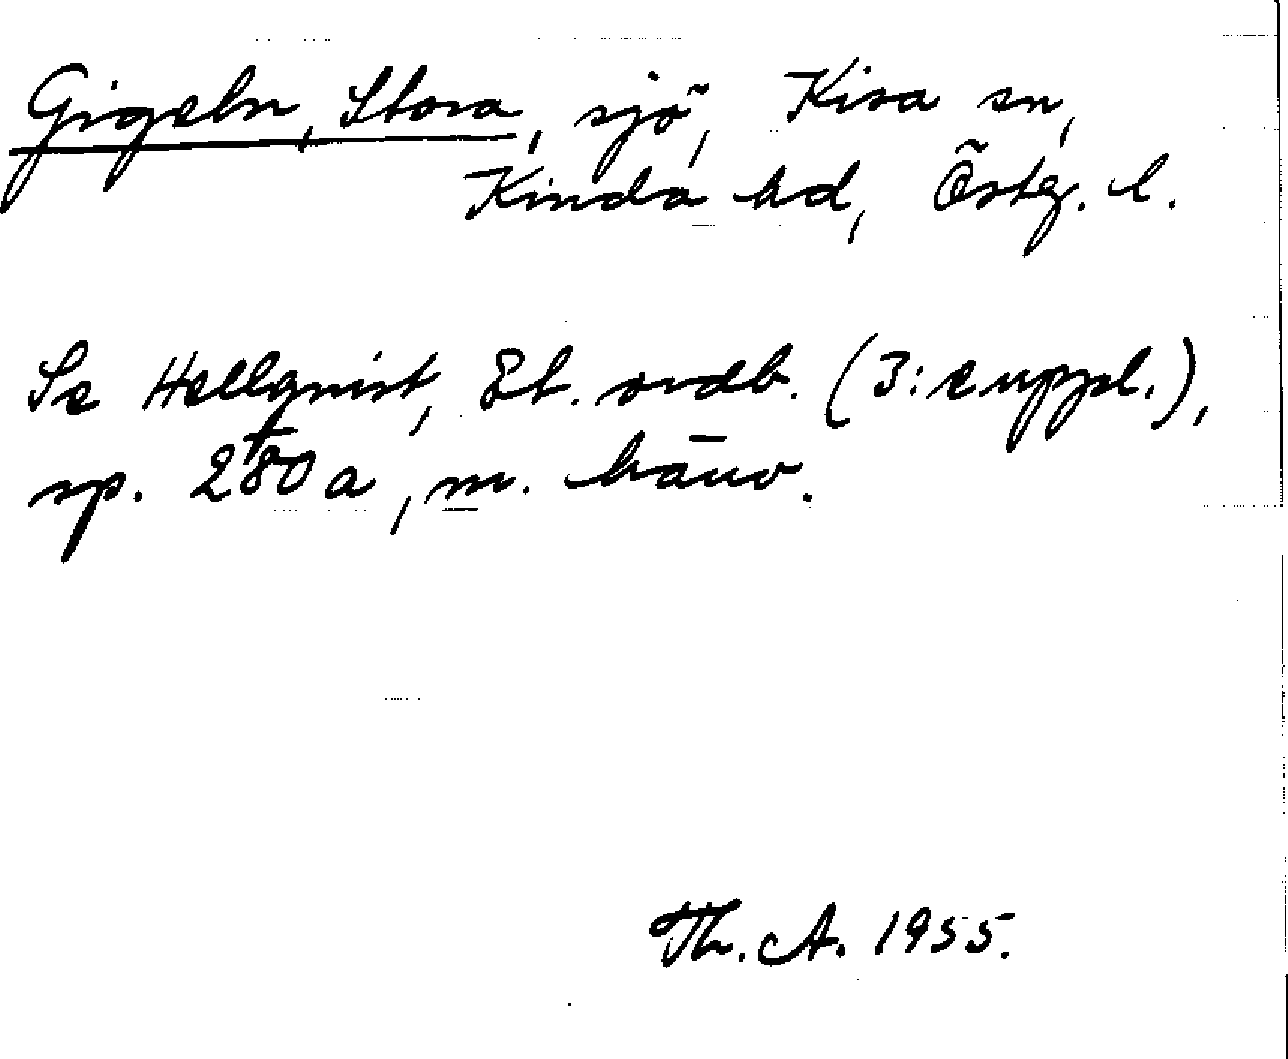 Gigeln, Stora, sjö, Kisa sn,
Kinda hd, Östg. l.
Se Hellquist, Et. ordb. (3:e uppl.),
sp. 280 a, m. hänv.
Th. A. 1955.